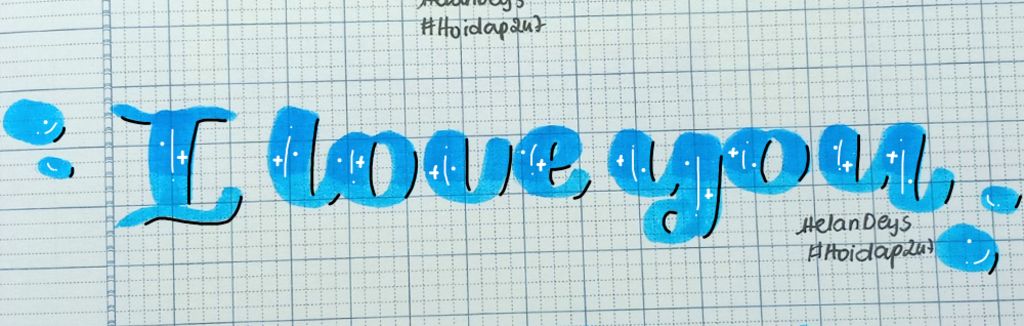 HelanDeys
#Hoidap247
I love you
HelanDeys
#Hoidap247